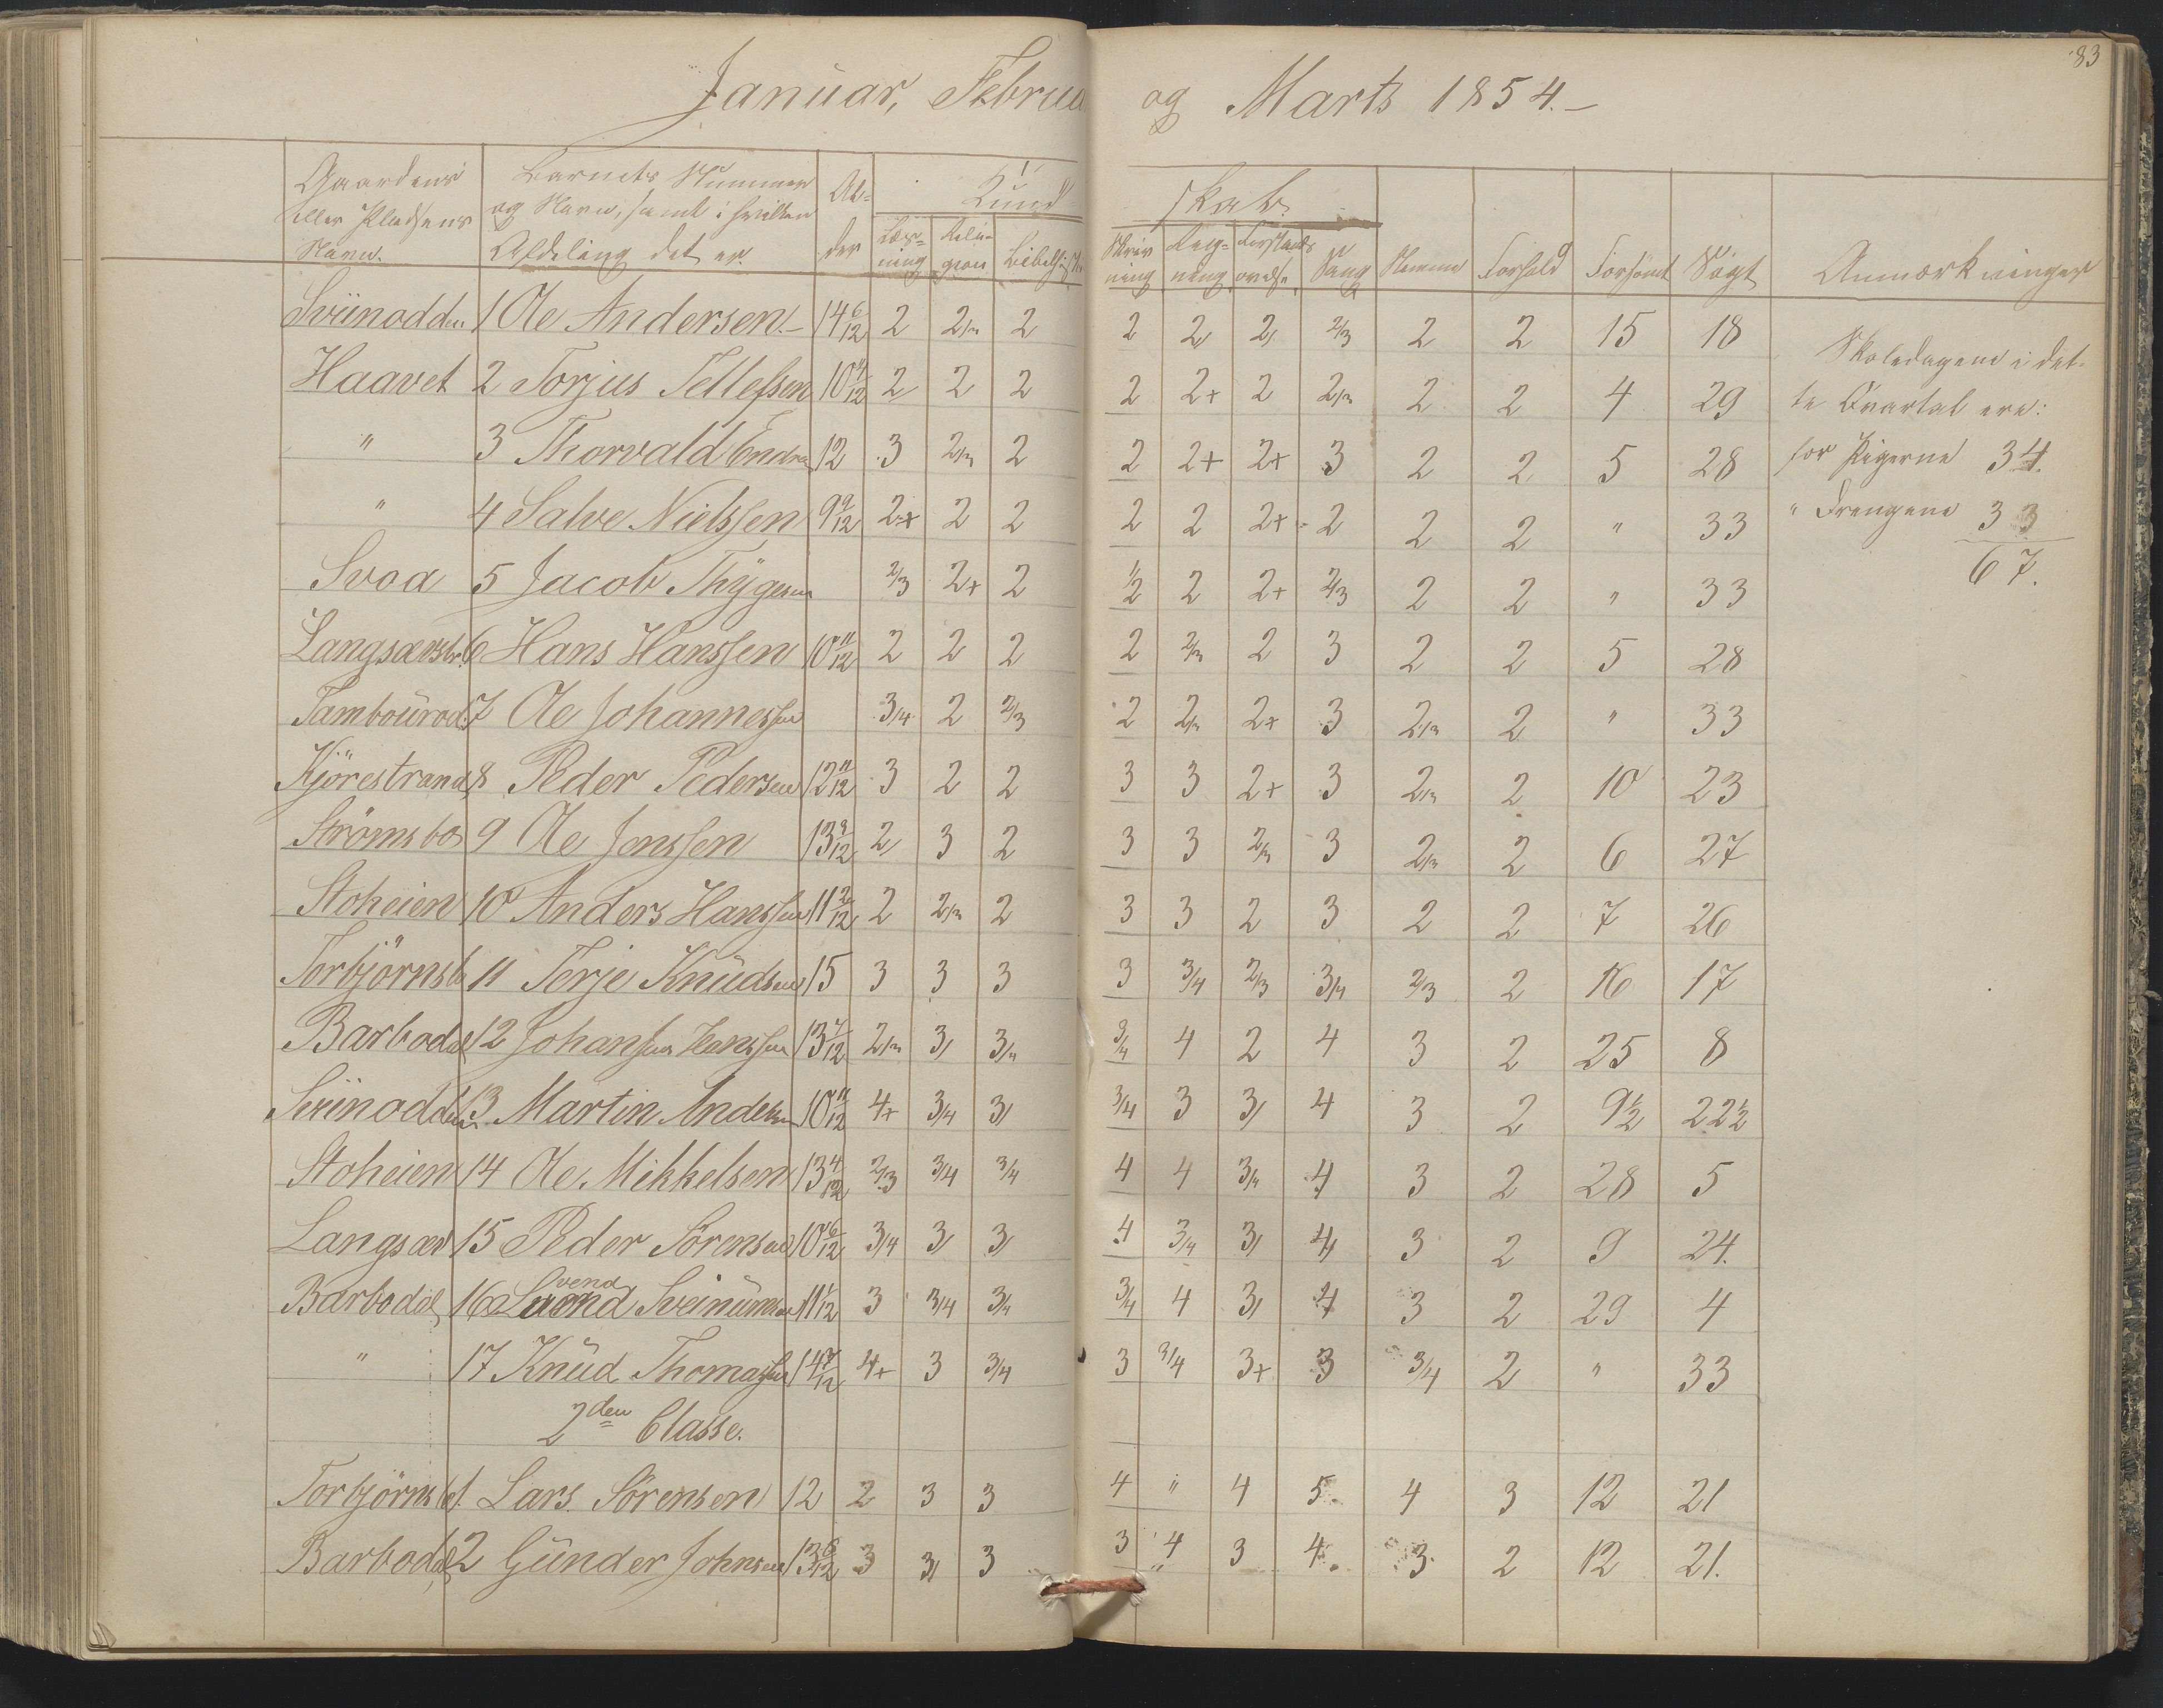 83
Januar, Februa og Marts 1854.-
Gaardens eller Pladsens Navn. | Barnets Nummer og Navn, samt i hvilken Afdeling det er. | Al-der | Kund skab. | Læs-ning | Reli-gion | Bibelhist | Skriv ning | Reg-ning | Forstands øvelse | Sang | Nemme | Forhold | Forsömt | Sögt | Anmærkninger
Sviinodden 1 Ole Andersen.- 14 6/12 2 2/3 2 2 2 2 2/3 2 2 15 18
Haavet 2 Torjus Tellefsen 10 4/12 2 2 2 2 2+ 2 2/3 2 2 4 29
" 3 Thorvald Endre 12 3 2/3 2 2 2+ 2+ 3 2 2 5 28
" 4 Salve Nielssen 9 9/12 2+ 2 2 2 2 2+ 2 2 2 " 33
Svoa 5 Jacob Thygesen 2/3 2+ 2 1/2 2 2+ 2/3 2 2 " 33
Langsærstr. 6 Hans Hanssen 10 11/12 2 2 2 2 2/3 2 3 2 2 5 28
Tambourod. 7 Ole Johannessen 3/4 2 2/3 2 2/3 2+ 3 2/3 2 " 33
Kjörestrand 8 Peder Pedersen 12 11/12 3 2 2 3 3 2+ 3 2/3 2 10 23
Strömsbo 9 Ole Jenssen 13 9/12 2 3 2 3 3 2/3 3 2/3 2 6 27
Stoheien 10 Anders Hanssen 11 2/12 2 2/3 2 3 3 2 3 2 2 7 26
Torbjörnsb 11 Terje Knudsen 15 3 3 3 3 3/4 2/3 3/4 2/3 2 16 17
Barbodal 12 Johan Hanssen 13 7/12 2/3 3 3/4 3/4 4 2 4 3 2 25 8
Sviinodden 13 Martin Andersen 10 11/12 4+ 3/4 3 3/4 3 3 4 3 2 9½ 22½
Stoheien 14 Ole Mikkelsen 13 4/12 2/3 3/4 3/4 4 4 3/4 4 3 2 28 5
Langsæv 15 Peder Sörensen 10 6/12 3/4 3 3 4 3/4 3 4 3 2 9 24.
Barbodal 16 Svend 11 1/12 3 3/4 3/4 3/4 4 3 4 3 2 29 4
" 17 Knud Thomassen 14 7/12 4+ 3 3/4 3 3/4 3+ 3 3/4 2 " 33
2den Classe.
Torbjörnsb 1. Lars Sörensen 12 2 3 3 4 " 4 5 4 3 12 21
Barbodal 2 Günder Johnsen 13 6/12 3 3 3 3 4 3 4 3 2 12 21.
Skoledagene i det-
te Qvartal ere:
for Pigerne 34.
" Drengene 33
67.